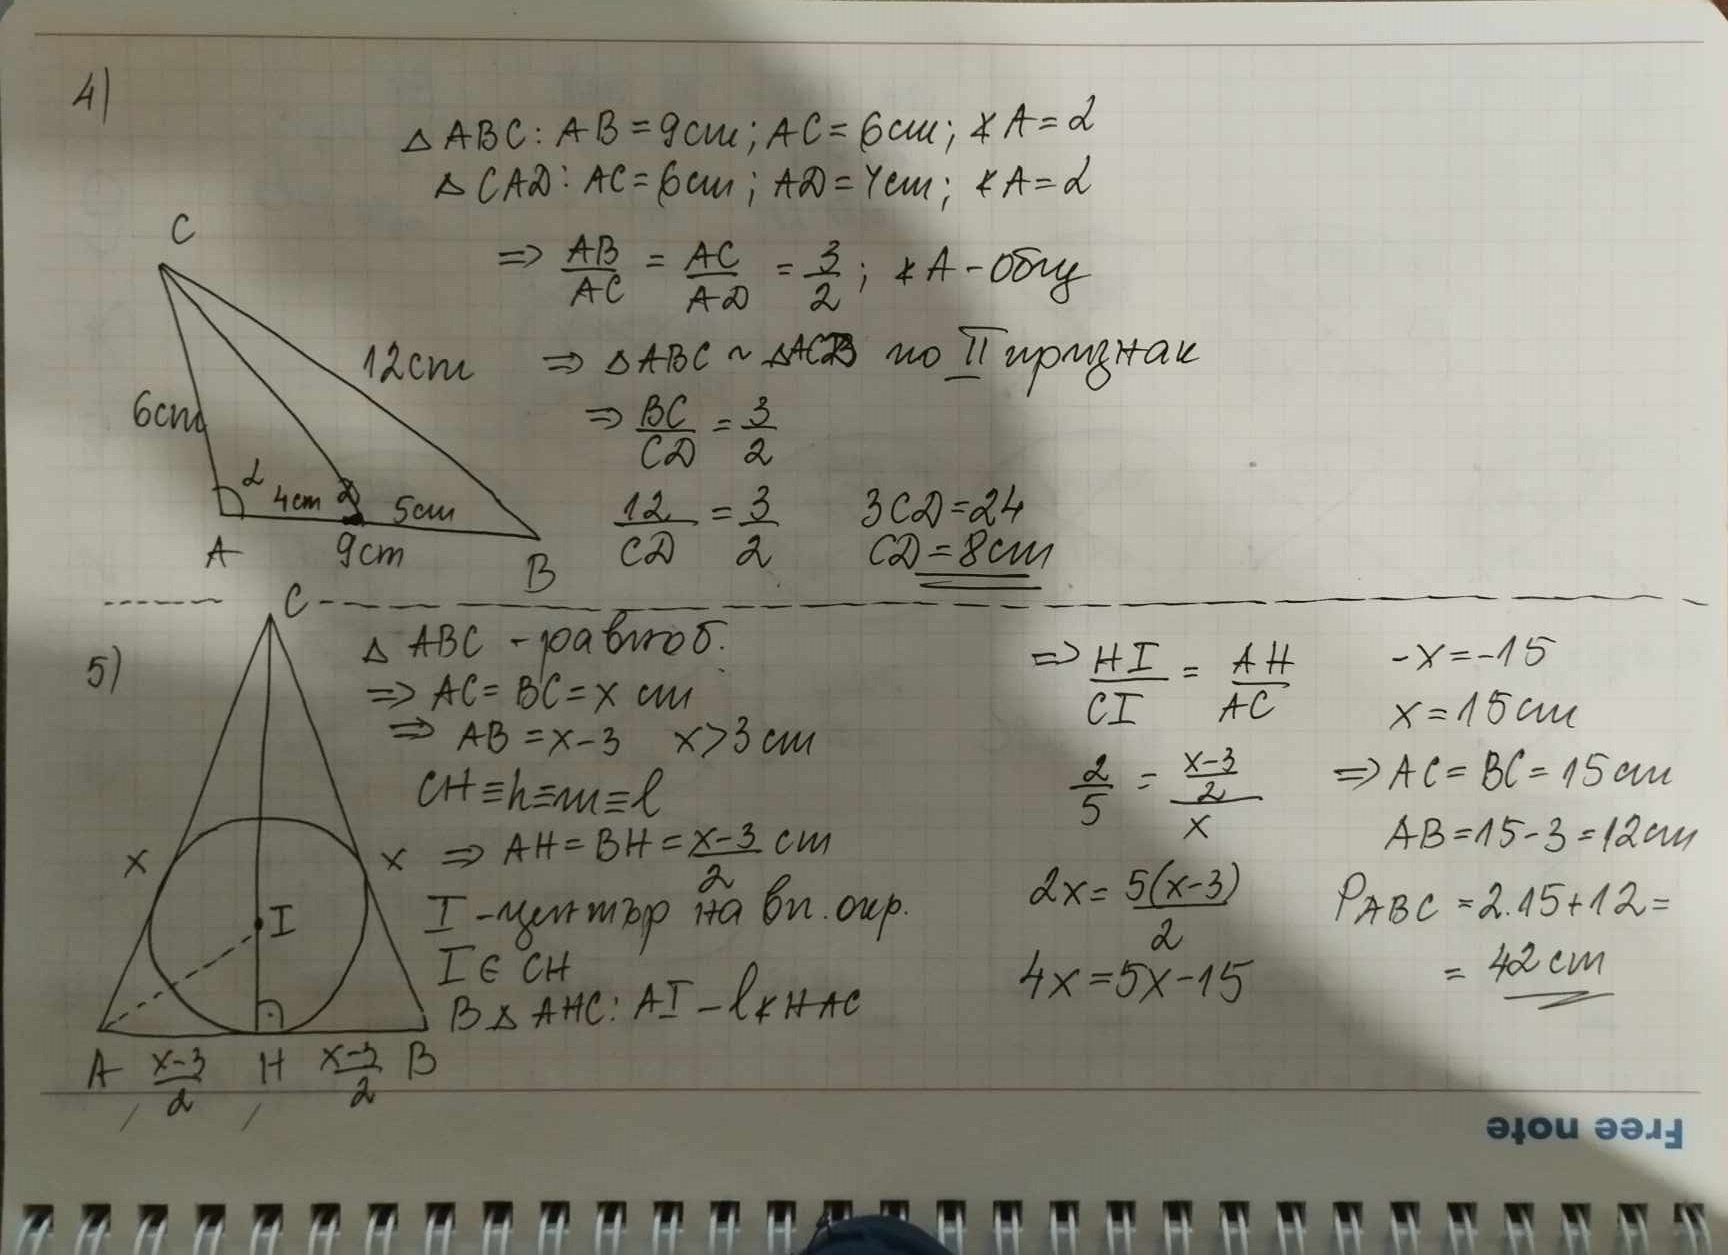 4)
△ABC: AB = 9cm; AC = 6cm; ∢A = α
△CAD: AC = 6cm; AD = 4cm; ∢A = α
⇒ AB/AC = AC/AD = 3/2; ∢A - общ
⇒ △ABC ~ △ACD по II признак
⇒ BC/CD = 3/2
12/CD = 3/2
3CD = 24
CD = 8cm
C
12cm
6cm
α
4cm
D
5cm
A
9cm
B
5)
C
x
x
I
A
x-3/2
H
x-3/2
B
△ ABC - равноб.
⇒ AC = BC = x cm
⇒ AB = x-3 x>3 cm
CH ≡ h ≡ m ≡ l
⇒ AH = BH = x-3/2 cm
I - център на вп. окр.
I ∈ CH
В △ AHC: AI - l ∢ HAC
⇒ HI/CI = AH/AC
2/5 = x-3/2/x
2x = 5(x-3)/2
4x = 5x - 15
-x = -15
x = 15cm
⇒ AC = BC = 15cm
AB = 15 - 3 = 12cm
PABC = 2.15 + 12 =
= 42 cm
Free note